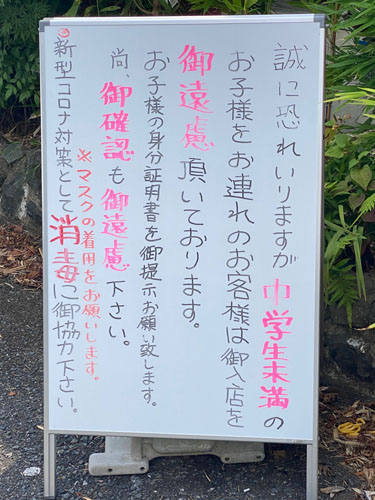 誠に恐れいりますが中学生未満の
お子様をお連れのお客様は御入店を
御遠慮頂いております。
お子様の身分証明書を御提示お願い致します。
尚、御確認も御遠慮下さい。
※マスクの着用をお願いします。
新型コロナ対策として消毒に御協力下さい。